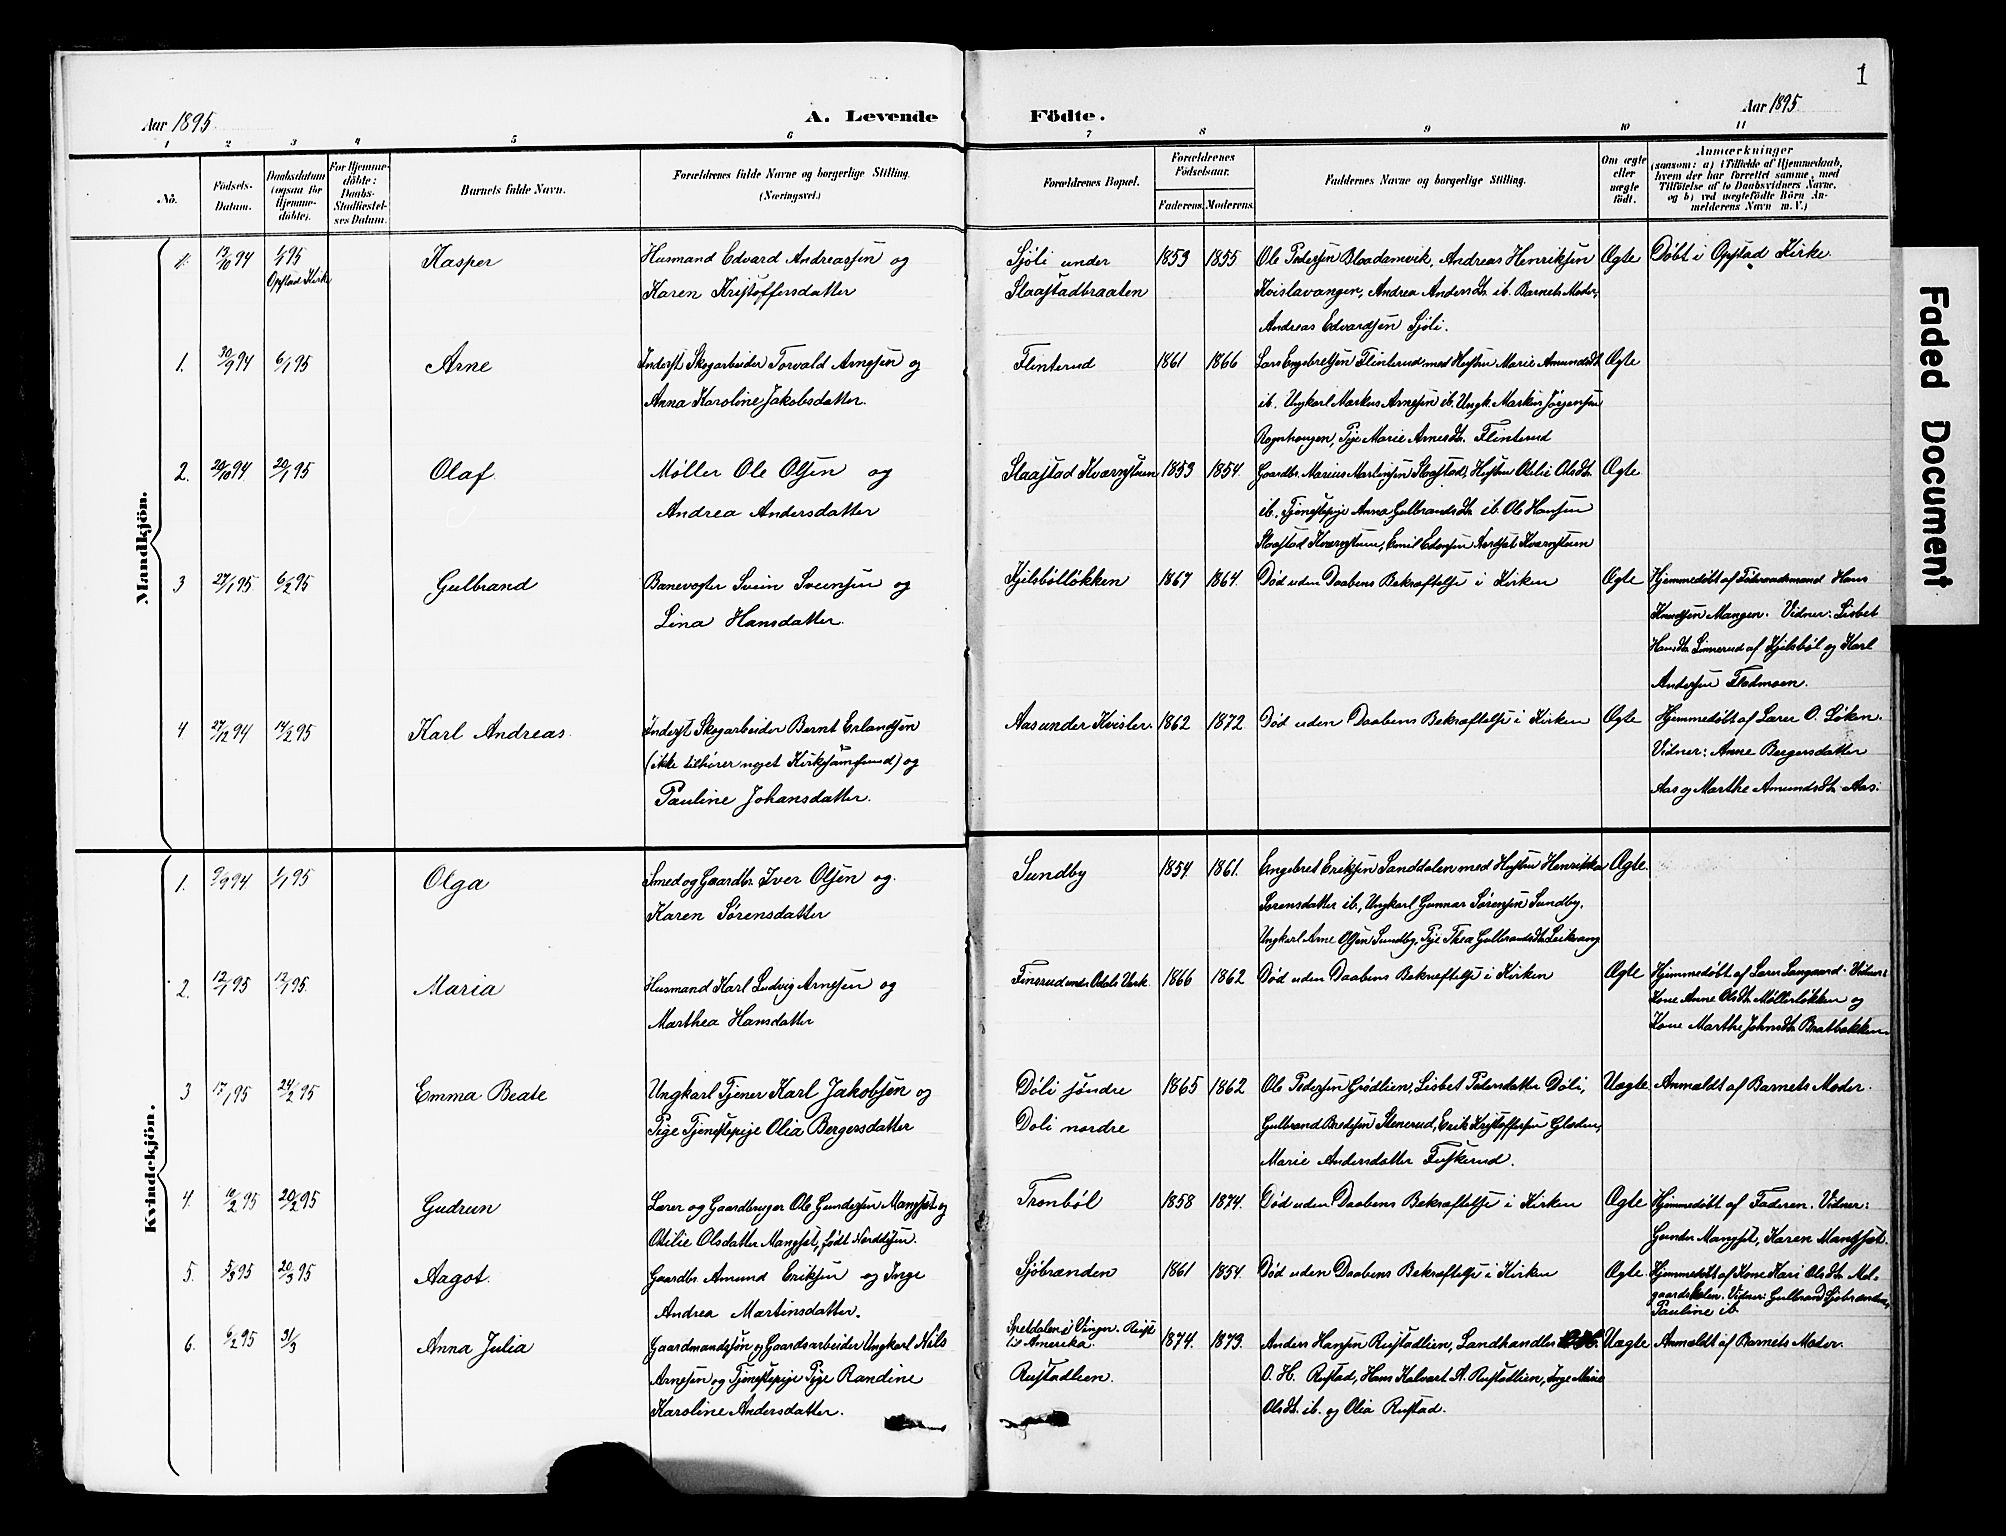 1
Aar 1895.
A. Levende
Födte.
Aar 1895
1 2 3 4 5 6 7 8 9 10 11
No.
Födsels-Datum.
Daabsdatum (ogsaa for Hjemme-döbte).
For Hjemme-döbte: Daabs-Stadfæstel-ses Datum.
Barnets fulde Navn.
Forældrenes fulde Navne og borgerlige Stilling. (Næringsvei.)
Forældrenes Bopæl.
Forældrenes Födselsaar.
Faderens. Moderens.
Faddernes Navne og borgerlige Stilling.
Om ægte eller uægte födt.
Anmærkninger
(saasom: a) i Tilfælde af Hjemmedaab,
hvem der har forrettet samme, med
Tilföielse af to Daabsvidners Navne,
og b) ved uægtefödte Börn An-
melderens Navn m. V.)
Faded Document
Mandkjön.
13/10 94 1/1 95 Opstad Kirke Kasper Husmand Edvard Andreassen og Sjøli under 1853 1855 Ole Pedersen Bloadamvik, Andreas Henriksen Ægte Døbt i Opstad Kirke.
Karen Kristoffersdatter Slaastadbraaten Kvislavangen, Andrea Andersdt. ib. Barnets Moder,
Andreas Edvardsen Sjøli.
1. 30/9 94 6/1 95 Arne Inderst Skogarbeider Torvald Arnesen og Flinterud 1861 1866 Lars Engebretsen Flinterud med Hustru Marie Amundsdt. Ægte
Anna Karoline Jakobsdatter. ib. Ungkarl Markus Arnesen ib. Ungk. Markus Jørgensen
Rognhaugen, Pige Marie Arnesdt. Flinterud
2. 20/10 94 20/1 95 Olaf Møller Ole Olsen og Slaastad Kværnstuen 1853 1854. Gaardbr. Marius Martinsen Slaastad, Hustru Otilie Olsdt. Ægte
Andrea Andersdatter ib. Tjenestepige Anna Gulbrandsdt. ib. Ole Hansen
Slaastad Kværnstuen, Emil Edvardsen Kværnstuen
3 27/1 95 6/2 95 Gulbrand Banevogter Svein Sveinsen og Kjelsbølløkken 1867 1864. Død uden Daabens Bekræftelse i Kirken Ægte Hjemmedøbt af Hans
Lina Hansdatter. Knudsen Mangen. Vidner: Lisbet
Hansdt. Linnerud af Kjelsbøl og Karl
Andersen Flødmoen.
4 27/12 94 14/2 95 Karl Andreas. Inderst Skogarbeider Bernt Erlandsen Aas under Kvisler. 1862 1872 Død uden Daabens Bekræftelse i Kirken Ægte Hjemmedøbt af Lærer O. Løken.
(ikke tilhører noget Kirkesamfund) og Vidner: Anne Bergersdatter
Pauline Johansdatter. Aas og Marthe Amundsdt. Aas.
Kvindekjön.
1. 9/9 94 1/1 95 Olga Smed og Gaardbr. Iver Olsen og Sundby 1854. 1861. Engebret Eriksen Sanddalen med Hustru Henrikka Ægte.
Karen Sørensdatter Sørensdatter ib., Ungkarl Gunnar Sørensen Sundby.
Ungkarl Arne Olsen Sundby, Pige Thea Gulbrandsdt. Leikvang
2. 12/1 95 13/1 95. Maria Husmand Karl Ludvig Arnesen og Finsrud under Odals Værk. 1866 1862 Død uden Daabens Bekræftelse i Kirken Ægte Hjemmedøbt af Lærer Langaard. Vidner:
Marthea Hansdatter Kone Anne Olsdt. Møllerløkken og
Kone Marthe Johnsdt. Bratbakken.
3 17/1 95 24/2 95 Emma Beate Ungkarl Tjener Karl Jakobsen og Døli søndre 1865 1862 Ole Pedersen Grødlien, Lisbet Pedersdatter Døli, Uægte Anmeldt af Barnets Moder.
Pige Tjenestepige Olia Bergersdatter Døli nordre Gulbrand Bredesen Stenerud, Erik Kristoffersen Gladen,
Marie Andersdatter Fuskerud.
4. 10/2 95 20/2 95 Gudrun Lærer og Gaardbruger Ole Gundersen Mangset og Tronbøl 1858 1874. Død uden Daabens Bekræftelse i Kirken Ægte Hjemmedøbt af Faderen. Vidner:
Otilie Olsdatter Mangset, født Nordbysen. Gunder Mangset, Karen Mangset.
5. 5/3 95 20/3 95 Aagot. Gaardbr. Amund Eriksen og Inge Sjøbrænden 1861 1854. Død uden Daabens Bekræftelse i Kirken Ægte Hjemmedøbt af Kone Kari Olsdt. Mel-
Andrea Martinsdatter. gaardsholen. Vidner: Gulbrand Sjøbrænden,
Pauline ib.
6. 6/2 95 31/3 Anna Julia Gaardmandssøn og Gaardsarbeider Ungkarl Nils Spetdalen i Vinger. Reist til Amerika. 1874. 1873. Anders Hansen Rustadlien, Landhandler Uægte Anmeldt af Barnets Moder.
Arnesen og Tjenestepige Pige Randine Rustadlien. O. H. Rustad, Hans Halvart A. Rustadlien, Inge Marie
Karoline Andersdatter. Olsdt. ib. og Olia Rustad.